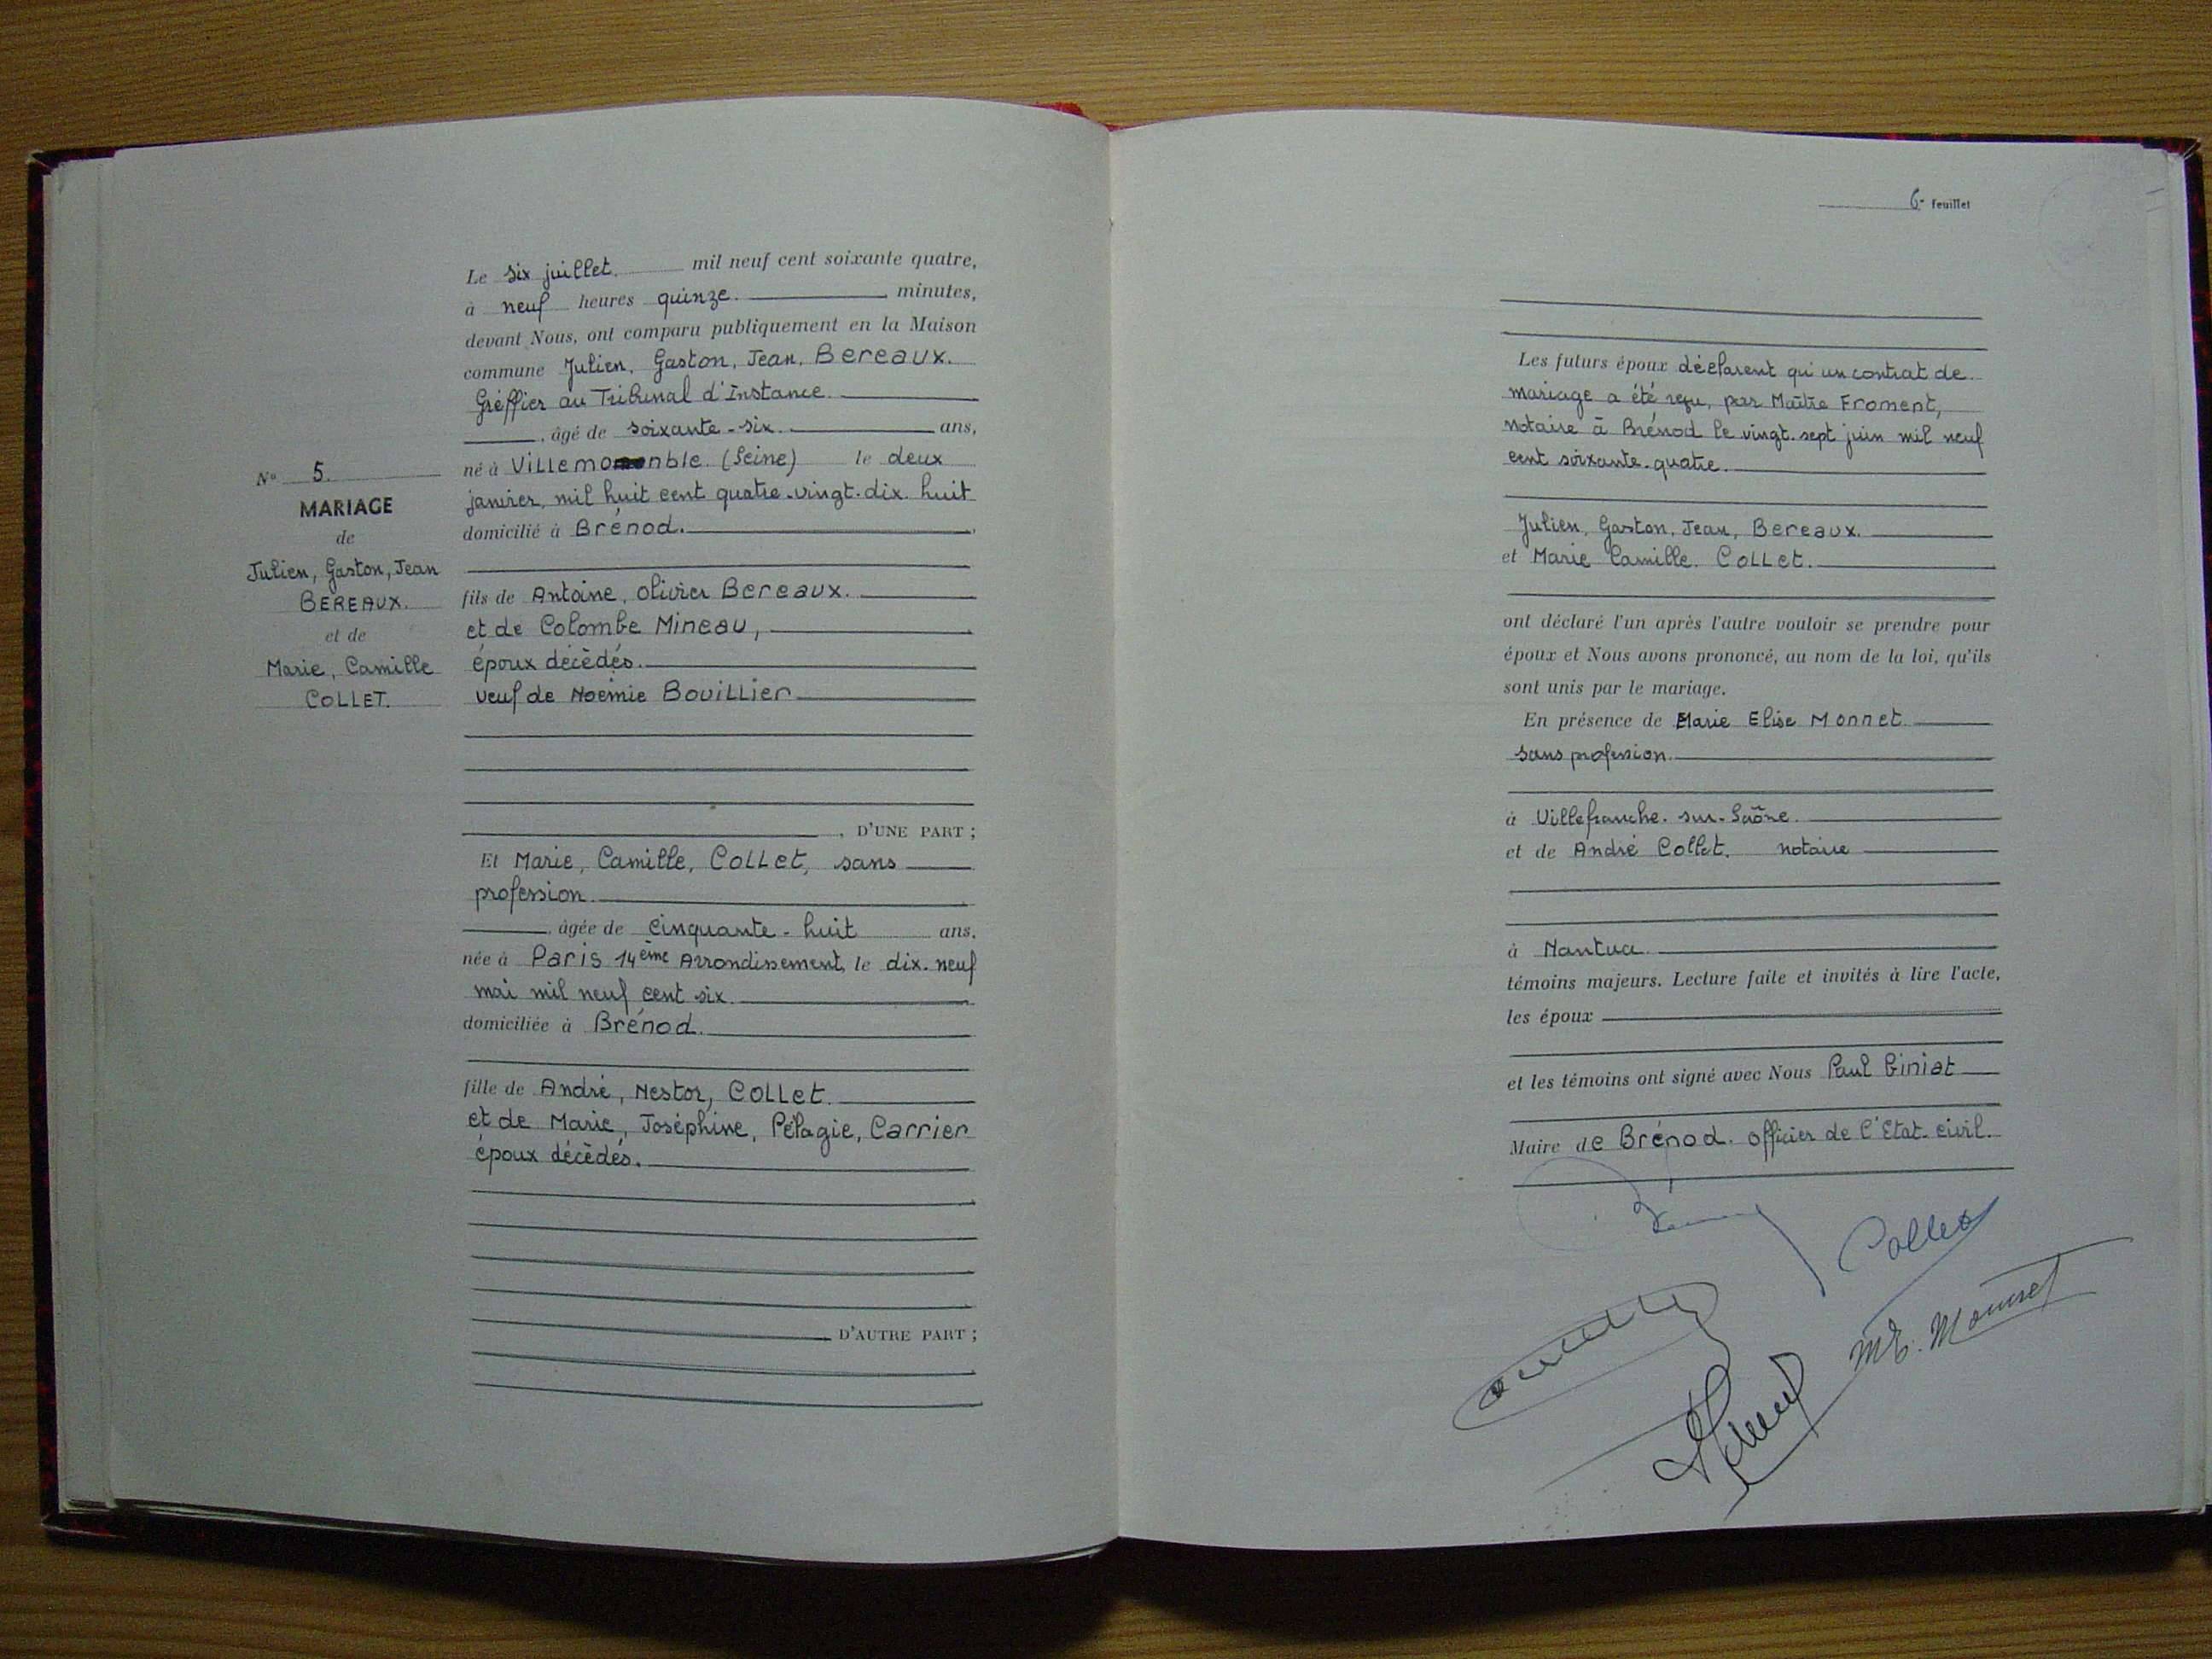 Le six juillet. mil neuf cent soixante quatre,
à neuf heures quinze. minutes,
devant Nous, ont comparu publiquement en la Maison
commune Julien, Gaston, Jean, Bereaux.
Gréffier au Tribunal d'Instance.
, âgé de soixante-six. ans,
né à Villemomble. (Seine) le deux
janvier, mil huit cent quatre-vingt-dix huit
domicilié à Brénod.
fils de Antoine, Olivier Bereaux.
et de Colombe Mineau,
époux décédés.
veuf de Noémie Bouillier
, D'UNE PART ;
N° 5.
MARIAGE
de
Julien, Gaston, Jean
BEREAUX.
et de
Marie, Camille
COLLET.
Et Marie, Camille, COLLET, sans
profession.
, âgée de cinquante-huit ans.
née à Paris 14ème Arrondissement, le dix-neuf
mai mil neuf cent six.
domiciliée à Brénod.
fille de André, Nestor, COLLET.
et de Marie, Joséphine, Pélagie, Carrier
époux décédés.
D'AUTRE PART ;
6e feuillet
Les futurs époux déclarent qu'un contrat de
mariage a été reçu, par Maître Froment,
notaire à Brénod le vingt-sept juin mil neuf
cent soixante-quatre.
Julien, Gaston, Jean, Bereaux.
et Marie Camille. COLLET.
ont déclaré l'un après l'autre vouloir se prendre pour
époux et Nous avons prononcé, au nom de la loi, qu'ils
sont unis par le mariage.
En présence de Marie Elise Monnet
sans profession.
à Villefranche-sur-Saône.
et de André Collet. notaire
à Nantua.
témoins majeurs. Lecture faite et invités à lire l'acte,
les époux
et les témoins ont signé avec Nous Paul Giniat
Maire de Brénod. Officier de l'Etat-civil.
Collet
ME. Monnet